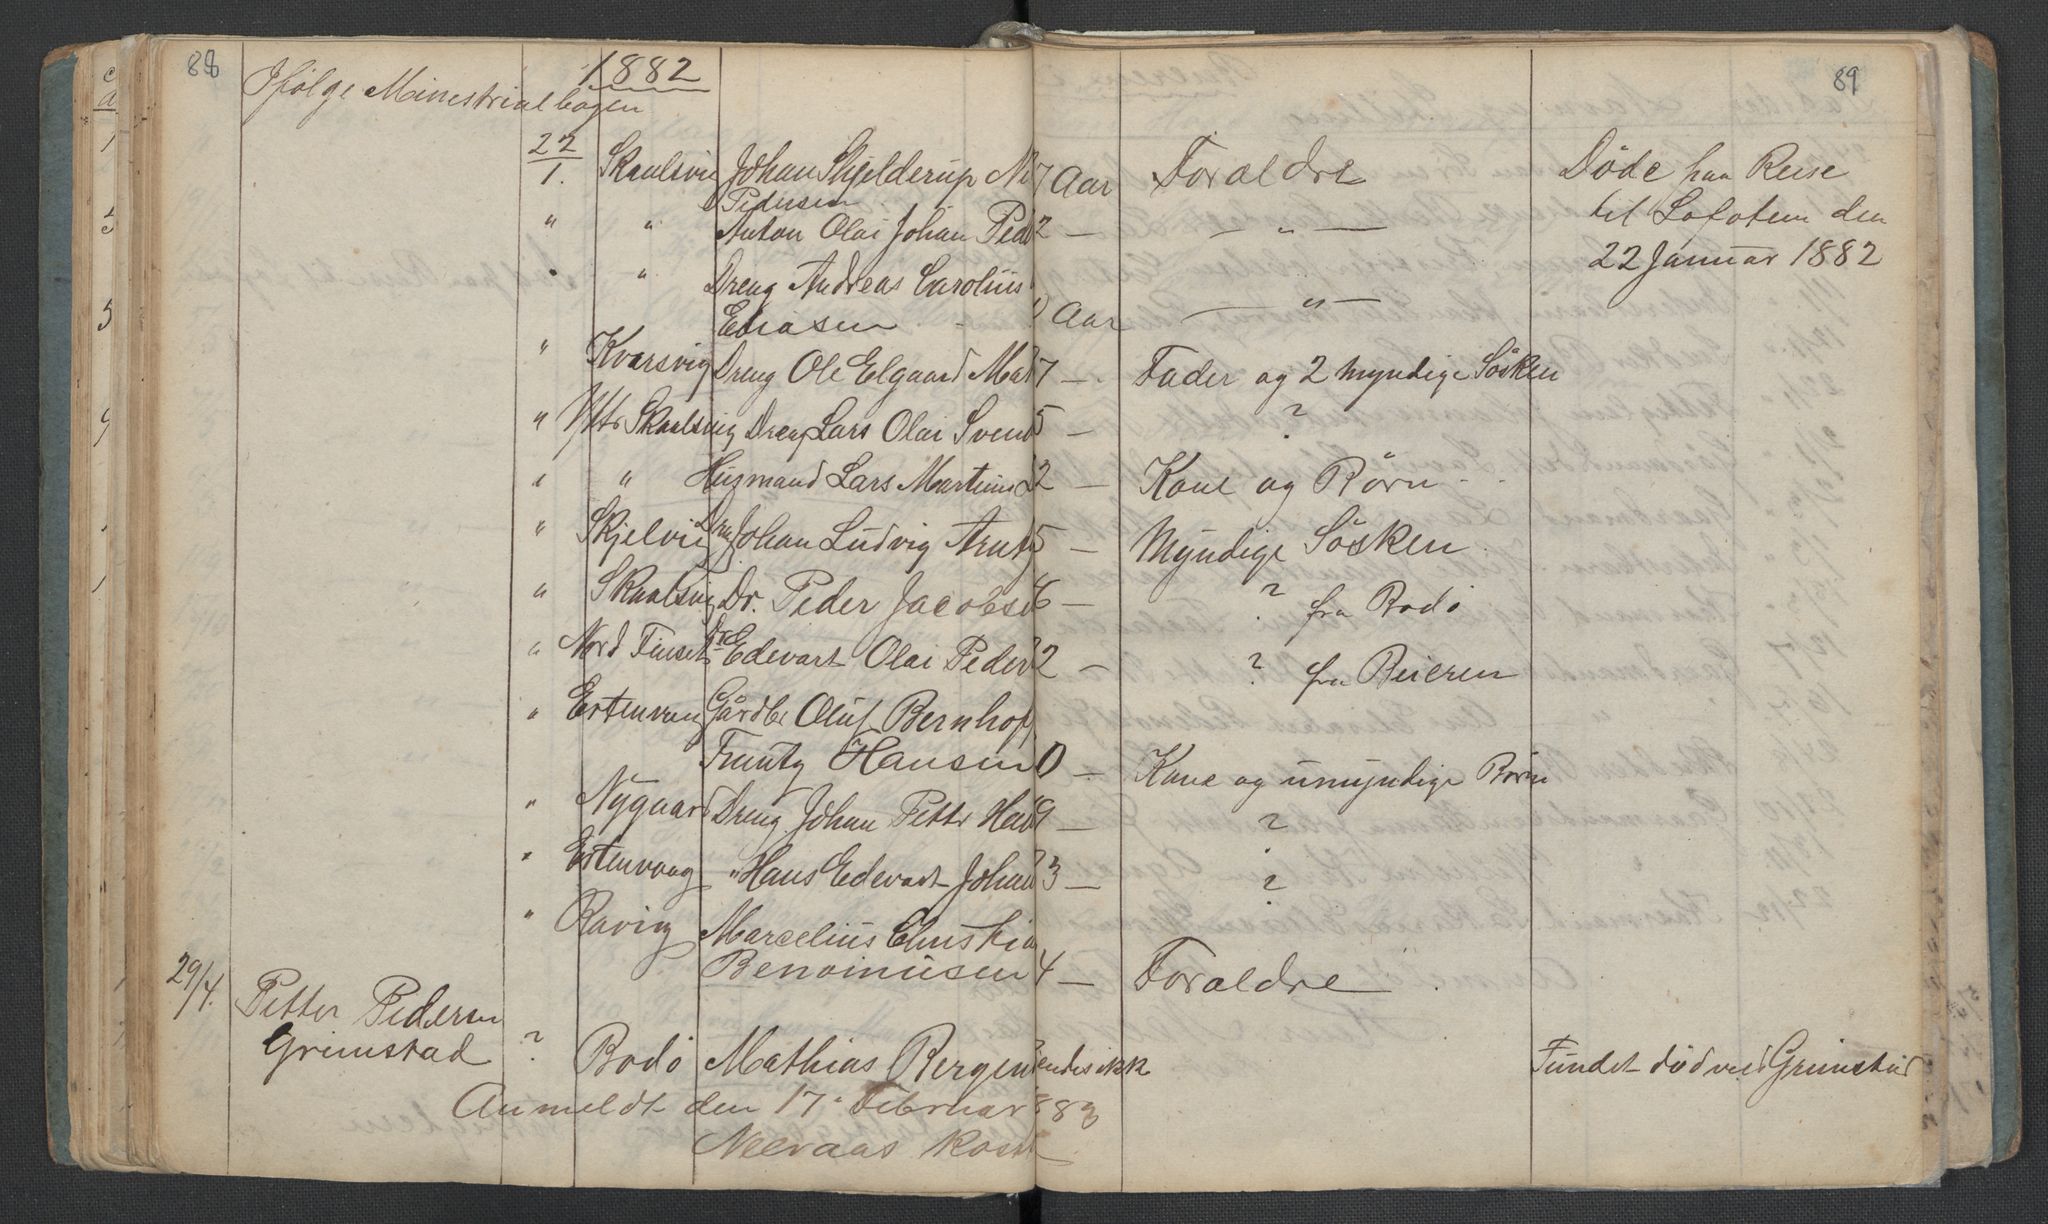 88
89
1882
Ifølge Ministrialbogen
22/1. Skaalsvik Johan Skjelderup 7 Aar Foraeldre Döde paa Reise
Pedersen til Lofoten den
" " Anton Olai Johan Ped 2 — — " — 22 Januar 1882
" " Dreng Andreas Carolius
Eliasen Aar — " —
" Kvarsvig Dreng Ole Elgaard Mat 7 — Fader og 2 myndige Sösken
" Yttr Skaalsvig Dreng Lars Olai Svend 5 — ?
" " Husmand Lars Martinus 2 — Kone og Börn
" Skjelvik Johan Ludvig Arntz 5 — Myndige Sösken
" Skaalsvig Dr. Peder Jacobse 6 — ? fra Bodö
" Nord Finset Dr Edevart Olai Peder 2 — ? fra Beieren
" Estenvaag Gårdbr Oluf Bernhof
Hansen 0 — Kone og umyndige Börn
" Nygaard Dreng Johan Petter 9 — ?
" Estenvaag " Hans Edevart Johan 3 — ?
" Ravig Marcelius Christia
Benoniusen 4 — Foraeldre
29/4. Petter Pedersen
Grimstad ? Bodö Mathias Bergen Fundet död ved Grimstad
Anmeldt den 17 Februar 883